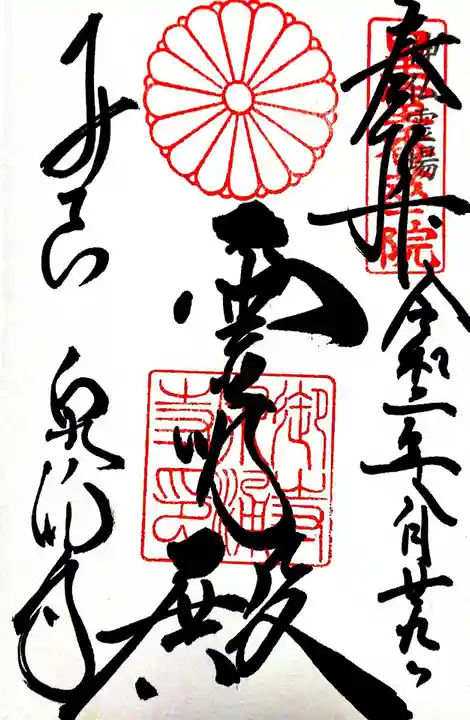 奉拝
神仏霊場
令和二年八月廿九日
霊明殿
御寺
泉涌
寺印
泉涌寺